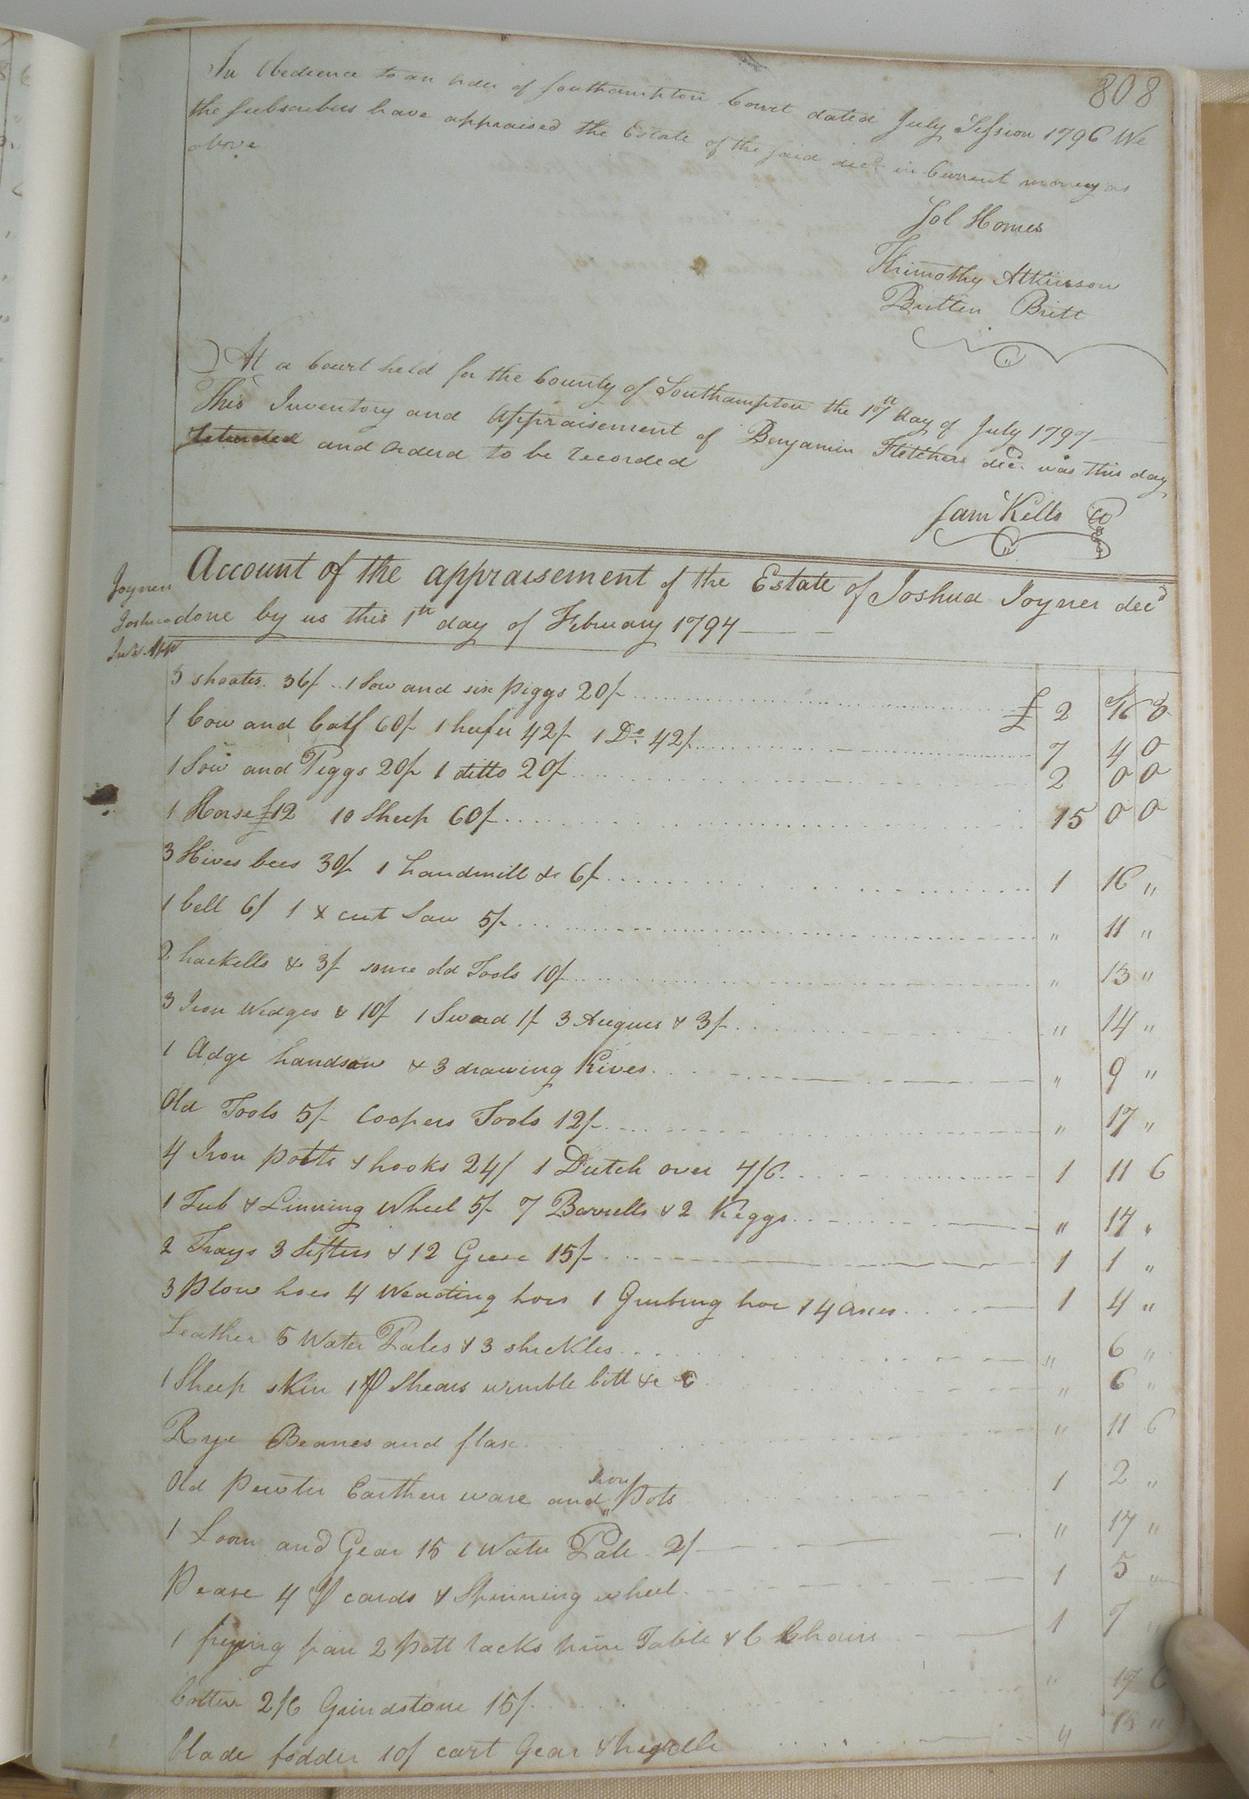 808
In Obedience to an order of Southampton Court dated July Session 1796 We
the Subscribers have appraised the Estate of the said decd in Current money as
above
Jol Homes
Thimothy Atkinson
Britten Britt
At a Court held for the County of Southampton the 17th day of July 1797
This Inventory and Appraisement of Benjamin Fletchers decd was this day
returned and orderd to be recorded
Sam Kello
Account of the appraisement of the Estate of Joshua Joyner decd
done by us this 1th day of February 1794
Joyner
Joshua
5 shoats 36/ 1 Sow and six piggs 20/ £ 2 16 3
1 Cow and Calf 60/ 1 heifer 42/ 1 Do 42/ 7 4 0
1 Sow and Piggs 20/ 1 ditto 20/ 2 0 0
1 Horse £12 10 Sheep 60/ 15 0 0
3 Hives bees 30/ 1 handmill &c 6/ 1 16 "
1 bell 6/ 1 x cut Saw 5/ " 11 "
2 hackells & 3/ some old Tools 10/ " 13 "
3 Iron Wedges & 10/ 1 Sword 1/ 3 Augurs & 3/ " 14 "
1 Adge handsaw & 3 drawing Kives " 9 "
Old Tools 5/ Coopers Tools 12/ " 17 "
4 Iron potts & hooks 24/ 1 Dutch oven 7/6 1 11 6
1 Tub & Linning Wheel 5/ 7 Barrells & 2 Keggs " 17 "
2 Trays 3 Sifters & 12 Geese 15/ 1 1 "
3 Plow hoes 4 Weading hoes 1 Grubing hoe 14 axes 1 4 "
Leather 5 Water Pales & 3 sheckles " 6 "
1 Sheep skin 1 p Shears wimble bitt &c " 6 "
Rye Beanes and flax " 11 6
Old Pewter Earthen ware and Iron Pots 1 2 "
1 Loom and Gear 15 1 Water Pale 2/ " 17 "
Pease 4 p cards & Spinning wheel 1 5 "
1 frying pan 2 Pott racks pine Table & 6 Chairs 1 7 "
Cotten 2/6 Grindstone 15/ " 17 6
Blade fodder 10/ cart Gear & " 15 "